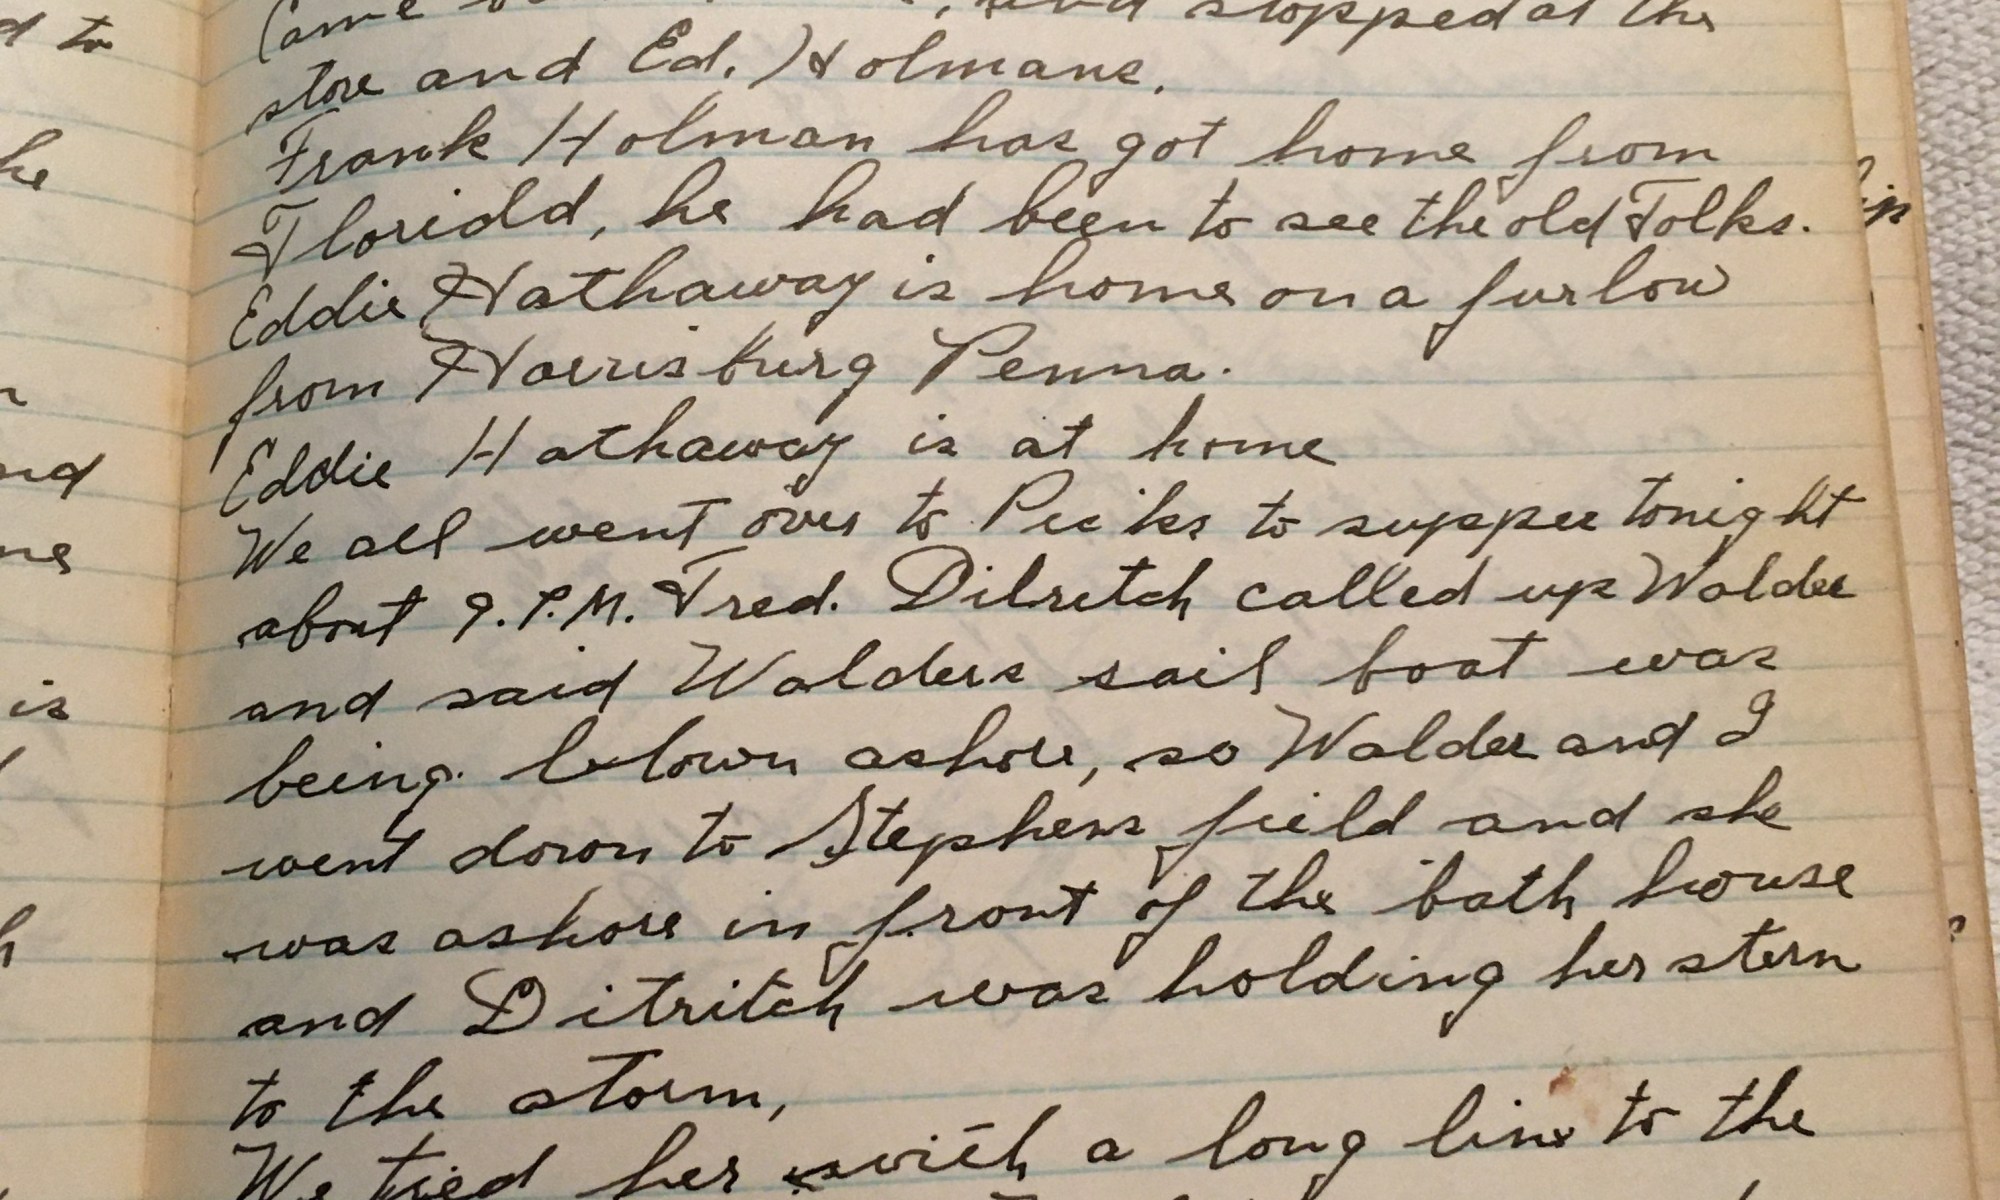 stopped at the
store and Ed. Holmans.
Frank Holman has got home from
Floridd, he had been to see the old Folks.
Eddie Hathaway is home on a furlow
from Harrisburg Penna.
Eddie Hathaway is at home
We all went over to to supper tonight
about 9. P.M. Fred. Dilretch called up Walder
and said Walders sail boat was
being blown ashore, so Walder and I
went down to Stephens field and she
was ashore in front of the bath house
and Ditritch was holding her stern
to the storm,
We tied her with a long line to the
d to
he
nd
is